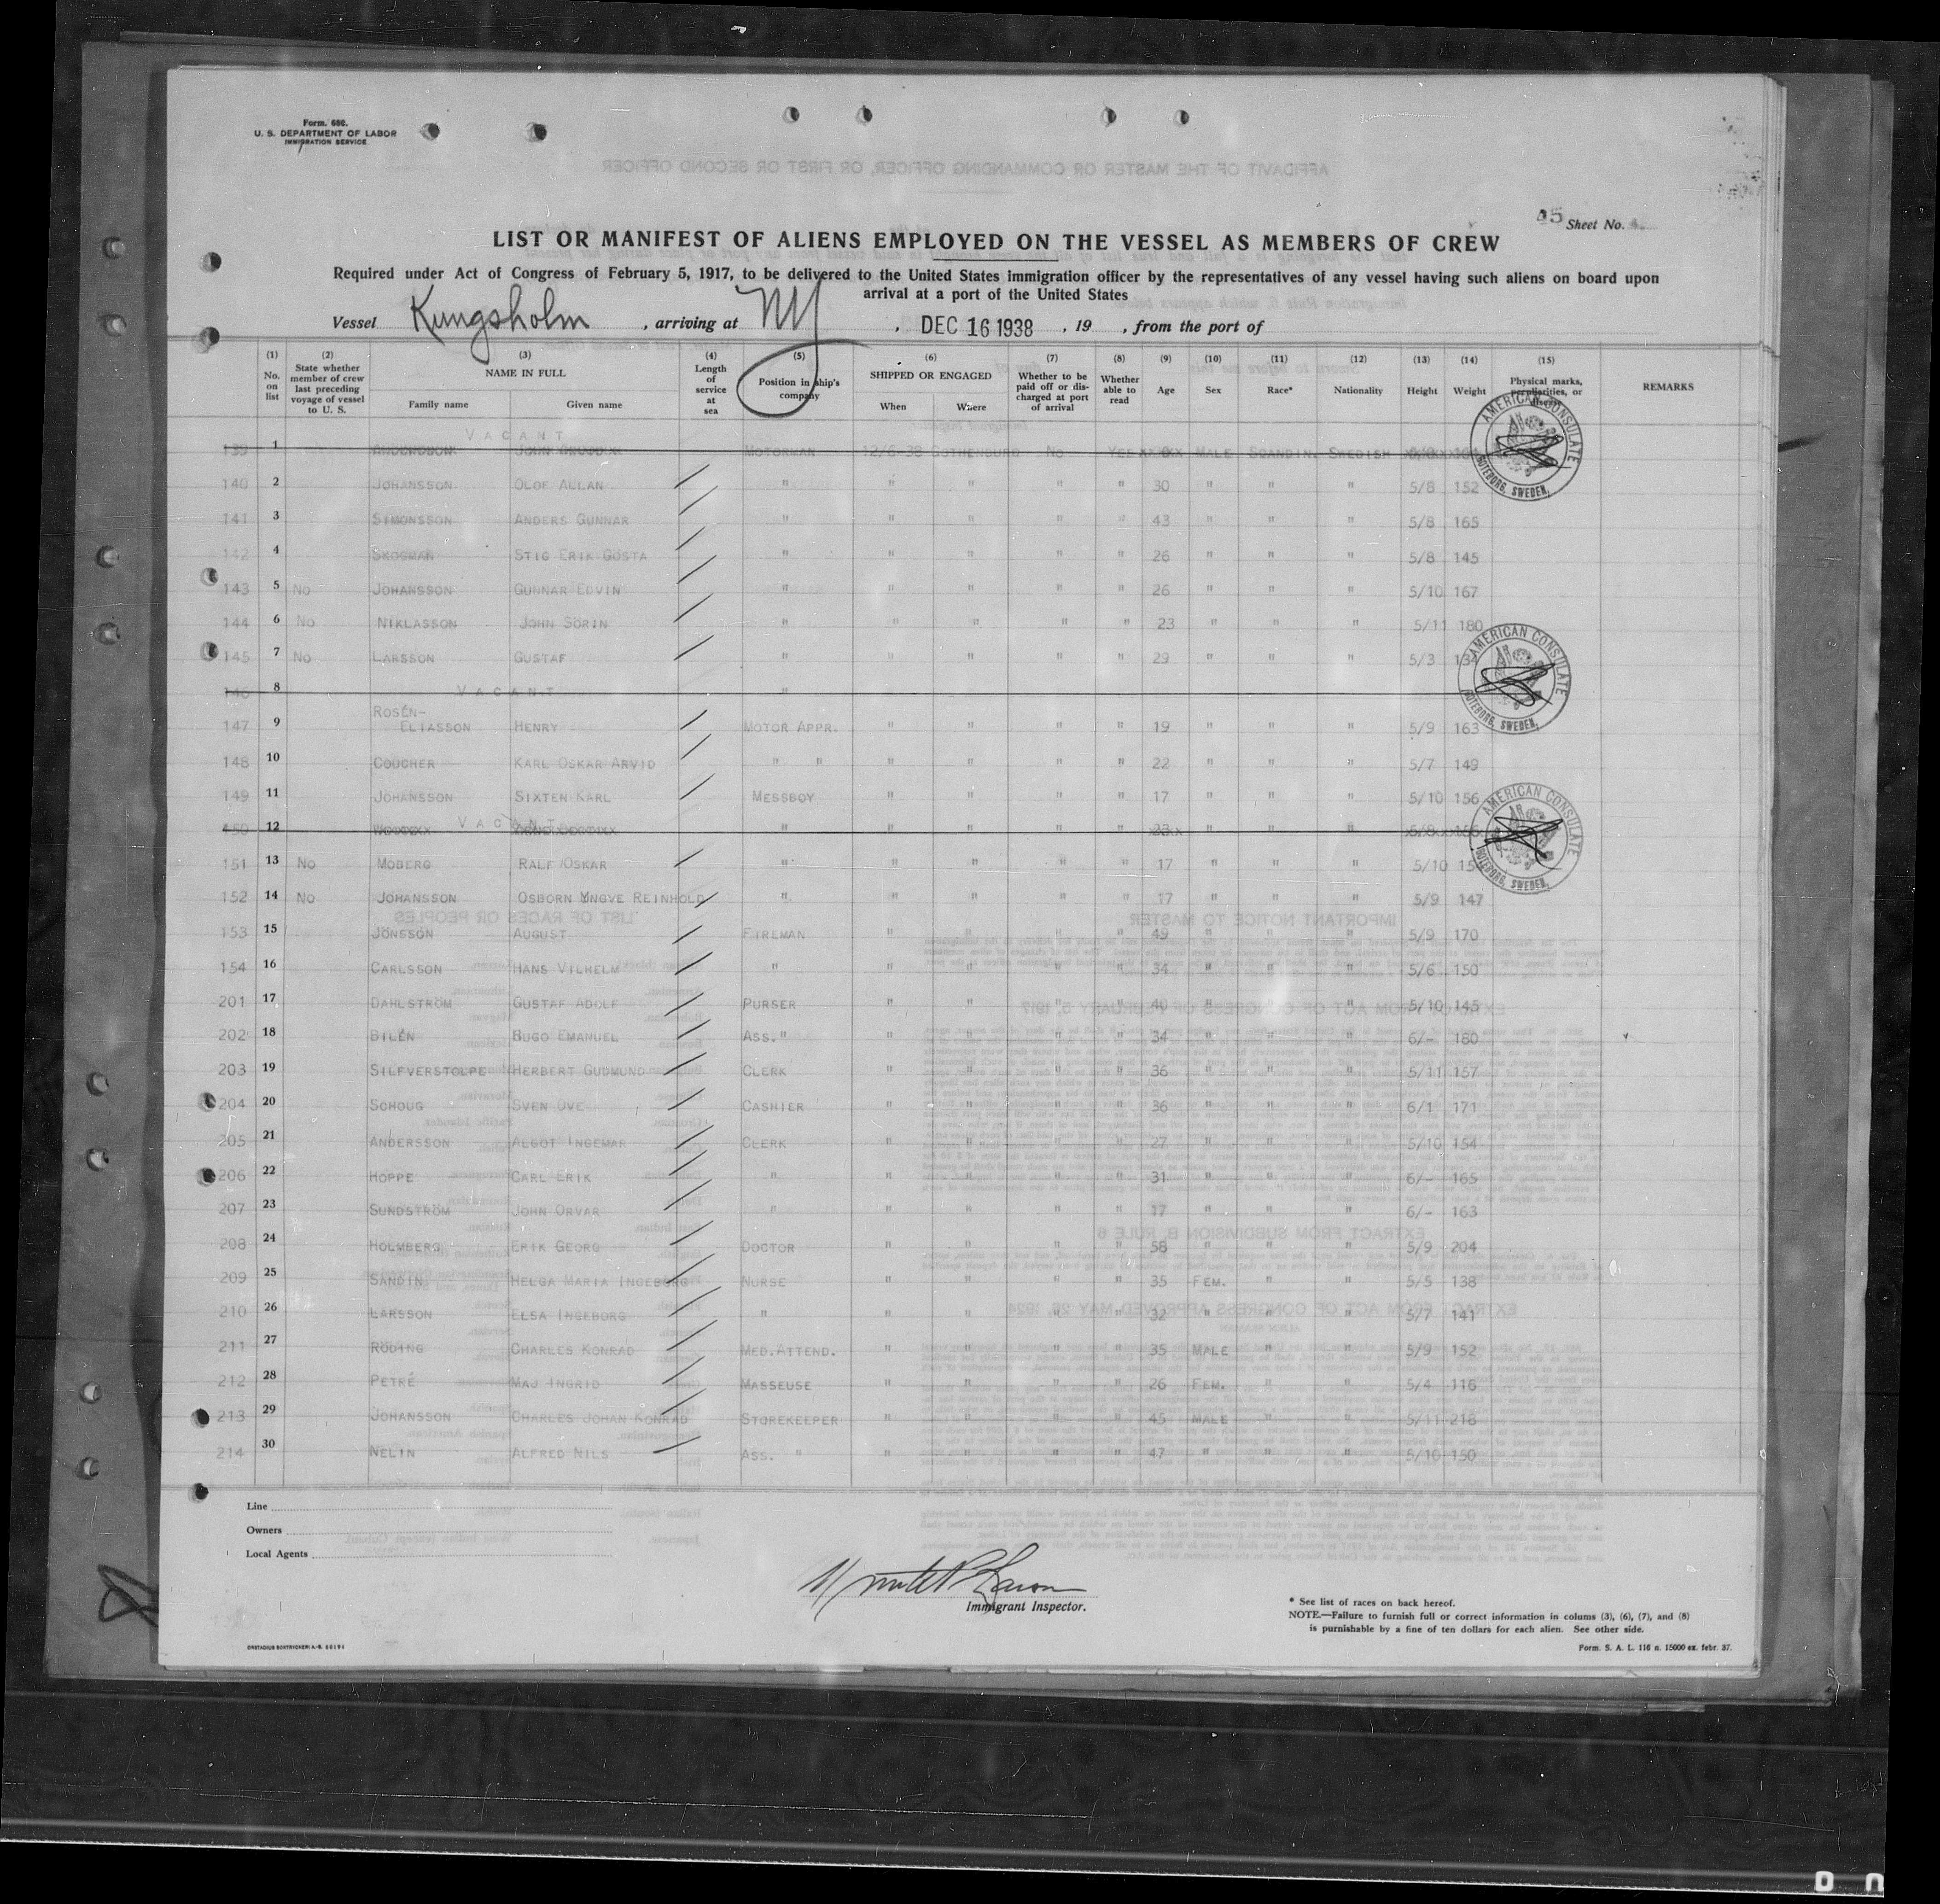 Form. 680.
U. S. DEPARTMENT OF LABOR
IMMIGRATION SERVICE
Sheet No.
LIST OR MANIFEST OF ALIENS EMPLOYED ON THE VESSEL AS MEMBERS OF CREW
Required under Act of Congress of February 5, 1917, to be delivered to the United States immigration officer by the representatives of any vessel having such aliens on board upon
arrival at a port of the United States
Vessel Kungsholm , arriving at NY , DEC 16 1938 , 19 , from the port of
(1) No. on list (2) State whether member of crew last preceding voyage of vessel to U. S. (3) NAME IN FULL Family name Given name (4) Length of service at sea (5) Position in ship's company (6) SHIPPED OR ENGAGED When Where (7) Whether to be paid off or discharged at port of arrival (8) Whether able to read (9) Age (10) Sex (11) Race* (12) Nationality (13) Height (14) Weight (15) Physical marks, peculiarities, or REMARKS
VACANT
139 1 MOTORMAN 12/6-38 GOTHENBURG No YES MALE SCANDIN. SWEDISH
140 2 JOHANSSON OLOF ALLAN " " " " " 30 " " " 5/8 152
141 3 SIMONSSON ANDERS GUNNAR " " " " " 43 " " " 5/8 165
142 4 SKOGMAN STIG ERIK GÖSTA " " " " " 26 " " " 5/8 145
143 5 No JOHANSSON GUNNAR EDVIN " " " " " 26 " " " 5/10 167
144 6 No NIKLASSON JOHN SÖRIN " " " " " 23 " " " 5/11 180
145 7 No LARSSON GUSTAF " " " " " 29 " " " 5/3
146 8 VACANT "
147 9 ROSÉN-ELIASSON HENRY MOTOR APPR. " " " " 19 " " " 5/9 163
148 10 COUCHER KARL OSKAR ARVID " " " " " " 22 " " " 5/7 149
149 11 JOHANSSON SIXTEN KARL MESSBOY " " " " 17 " " " 5/10 156
150 12 VACANT " " " " " " " "
151 13 No MOBERG RALF OSKAR " " " " " 17 " " " 5/10
152 14 No JOHANSSON OSBORN YNGVE REINHOLD " " " " " 17 " " " 5/9 147
153 15 JÖNSSON AUGUST FIREMAN " " " " 49 " " " 5/9 170
154 16 CARLSSON HANS VILHELM " " " " " 34 " " " 5/6 150
201 17 DAHLSTRÖM GUSTAF ADOLF PURSER " " " " 40 " " " 5/10 145
202 18 BILÉN BUGO EMANUEL ASS." " " " " 34 " " " 6/- 180
203 19 SILFVERSTOLPE HERBERT GUDMUND CLERK " " " " 36 " " " 5/11 157
204 20 SCHOUG SVEN OVE CASHIER " " " " 36 " " " 6/1 171
205 21 ANDERSSON ALGOT INGEMAR CLERK " " " " 27 " " " 5/10 154
206 22 HOPPE CARL ERIK " " " " " 31 " " " 6/- 165
207 23 SUNDSTRÖM JOHN ORVAR " " " " " 17 " " " 6/- 163
208 24 HOLMBERG ERIK GEORG DOCTOR " " " " 58 " " " 5/9 204
209 25 SANDIN HELGA MARIA INGEBORG NURSE " " " " 35 FEM. " " 5/5 138
210 26 LARSSON ELSA INGEBORG " " " " " 32 " " " 5/7 141
211 27 RÖDING CHARLES KONRAD MED.ATTEND. " " " " 35 MALE " " 5/9 152
212 28 PETRÉ MAJ INGRID MASSEUSE " " " " 26 FEM. " " 5/4 116
213 29 JOHANSSON CHARLES JOHAN KONRAD STOREKEEPER " " " " 45 MALE " " 5/11 218
214 30 NELIN ALFRED NILS ASS. " " " " " 47 " " " 5/10 150
AMERICAN CONSULATE GÖTEBORG, SWEDEN.
AMERICAN CONSULATE GÖTEBORG, SWEDEN.
AMERICAN CONSULATE GÖTEBORG, SWEDEN.
Line
Owners
Local Agents
Immigrant Inspector.
* See list of races on back hereof.
NOTE.—Failure to furnish full or correct information in colums (3), (6), (7), and (8)
is purnishable by a fine of ten dollars for each alien. See other side.
Form. S. A. L. 116 n. 15000 ex. febr. 37.